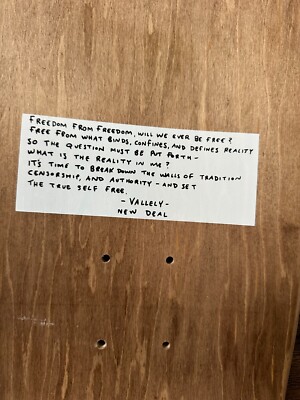 FREEDOM FROM FREEDOM, WILL WE EVER BE FREE?
FREE FROM WHAT BINDS, CONFINES, AND DEFINES REALITY
SO THE QUESTION MUST BE PUT FORTH -
WHAT IS THE REALITY IN ME?
IT'S TIME TO BREAK DOWN THE WALLS OF TRADITION
CENSORSHIP, AND AUTHORITY - AND SET
THE TRUE SELF FREE.
- VALLELY -
NEW DEAL